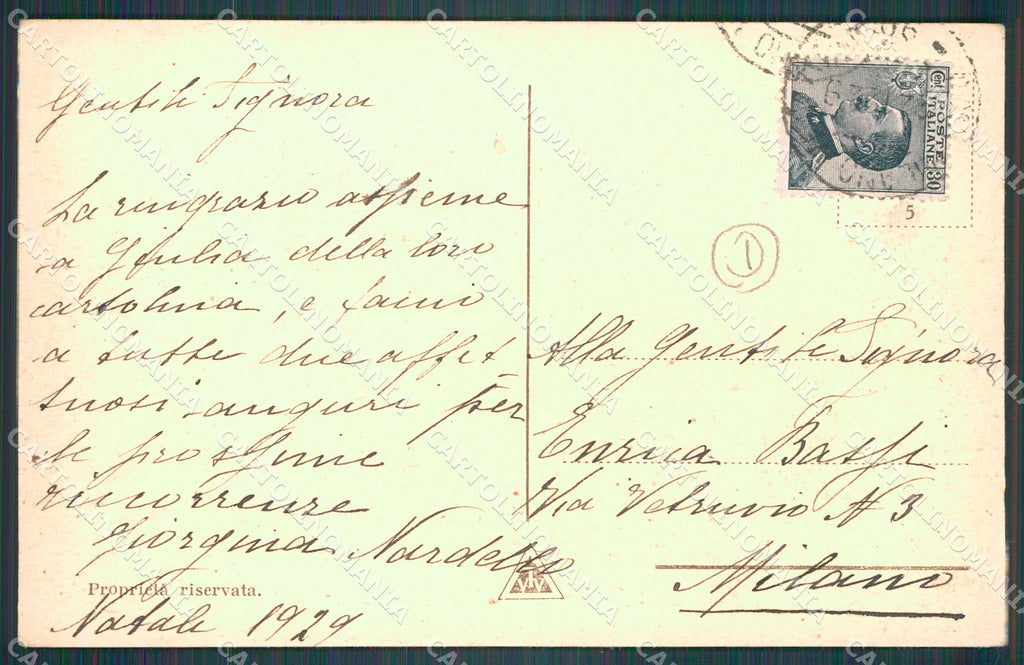 Gentile Signora
La ringrazio assieme
a Giulia della loro
cartolina, e faccio
a tutte due affet
tuosi auguri per
le prossime
ricorrenze
Giorgina Nardello
Proprietà riservata.
Natale 1929
Cent.
POSTE
ITALIANE
30
5
1
Alla Gentile Signora
Enrica Bassi
Via Vetruvio N 3
Milano
CARTOLINOMANIA